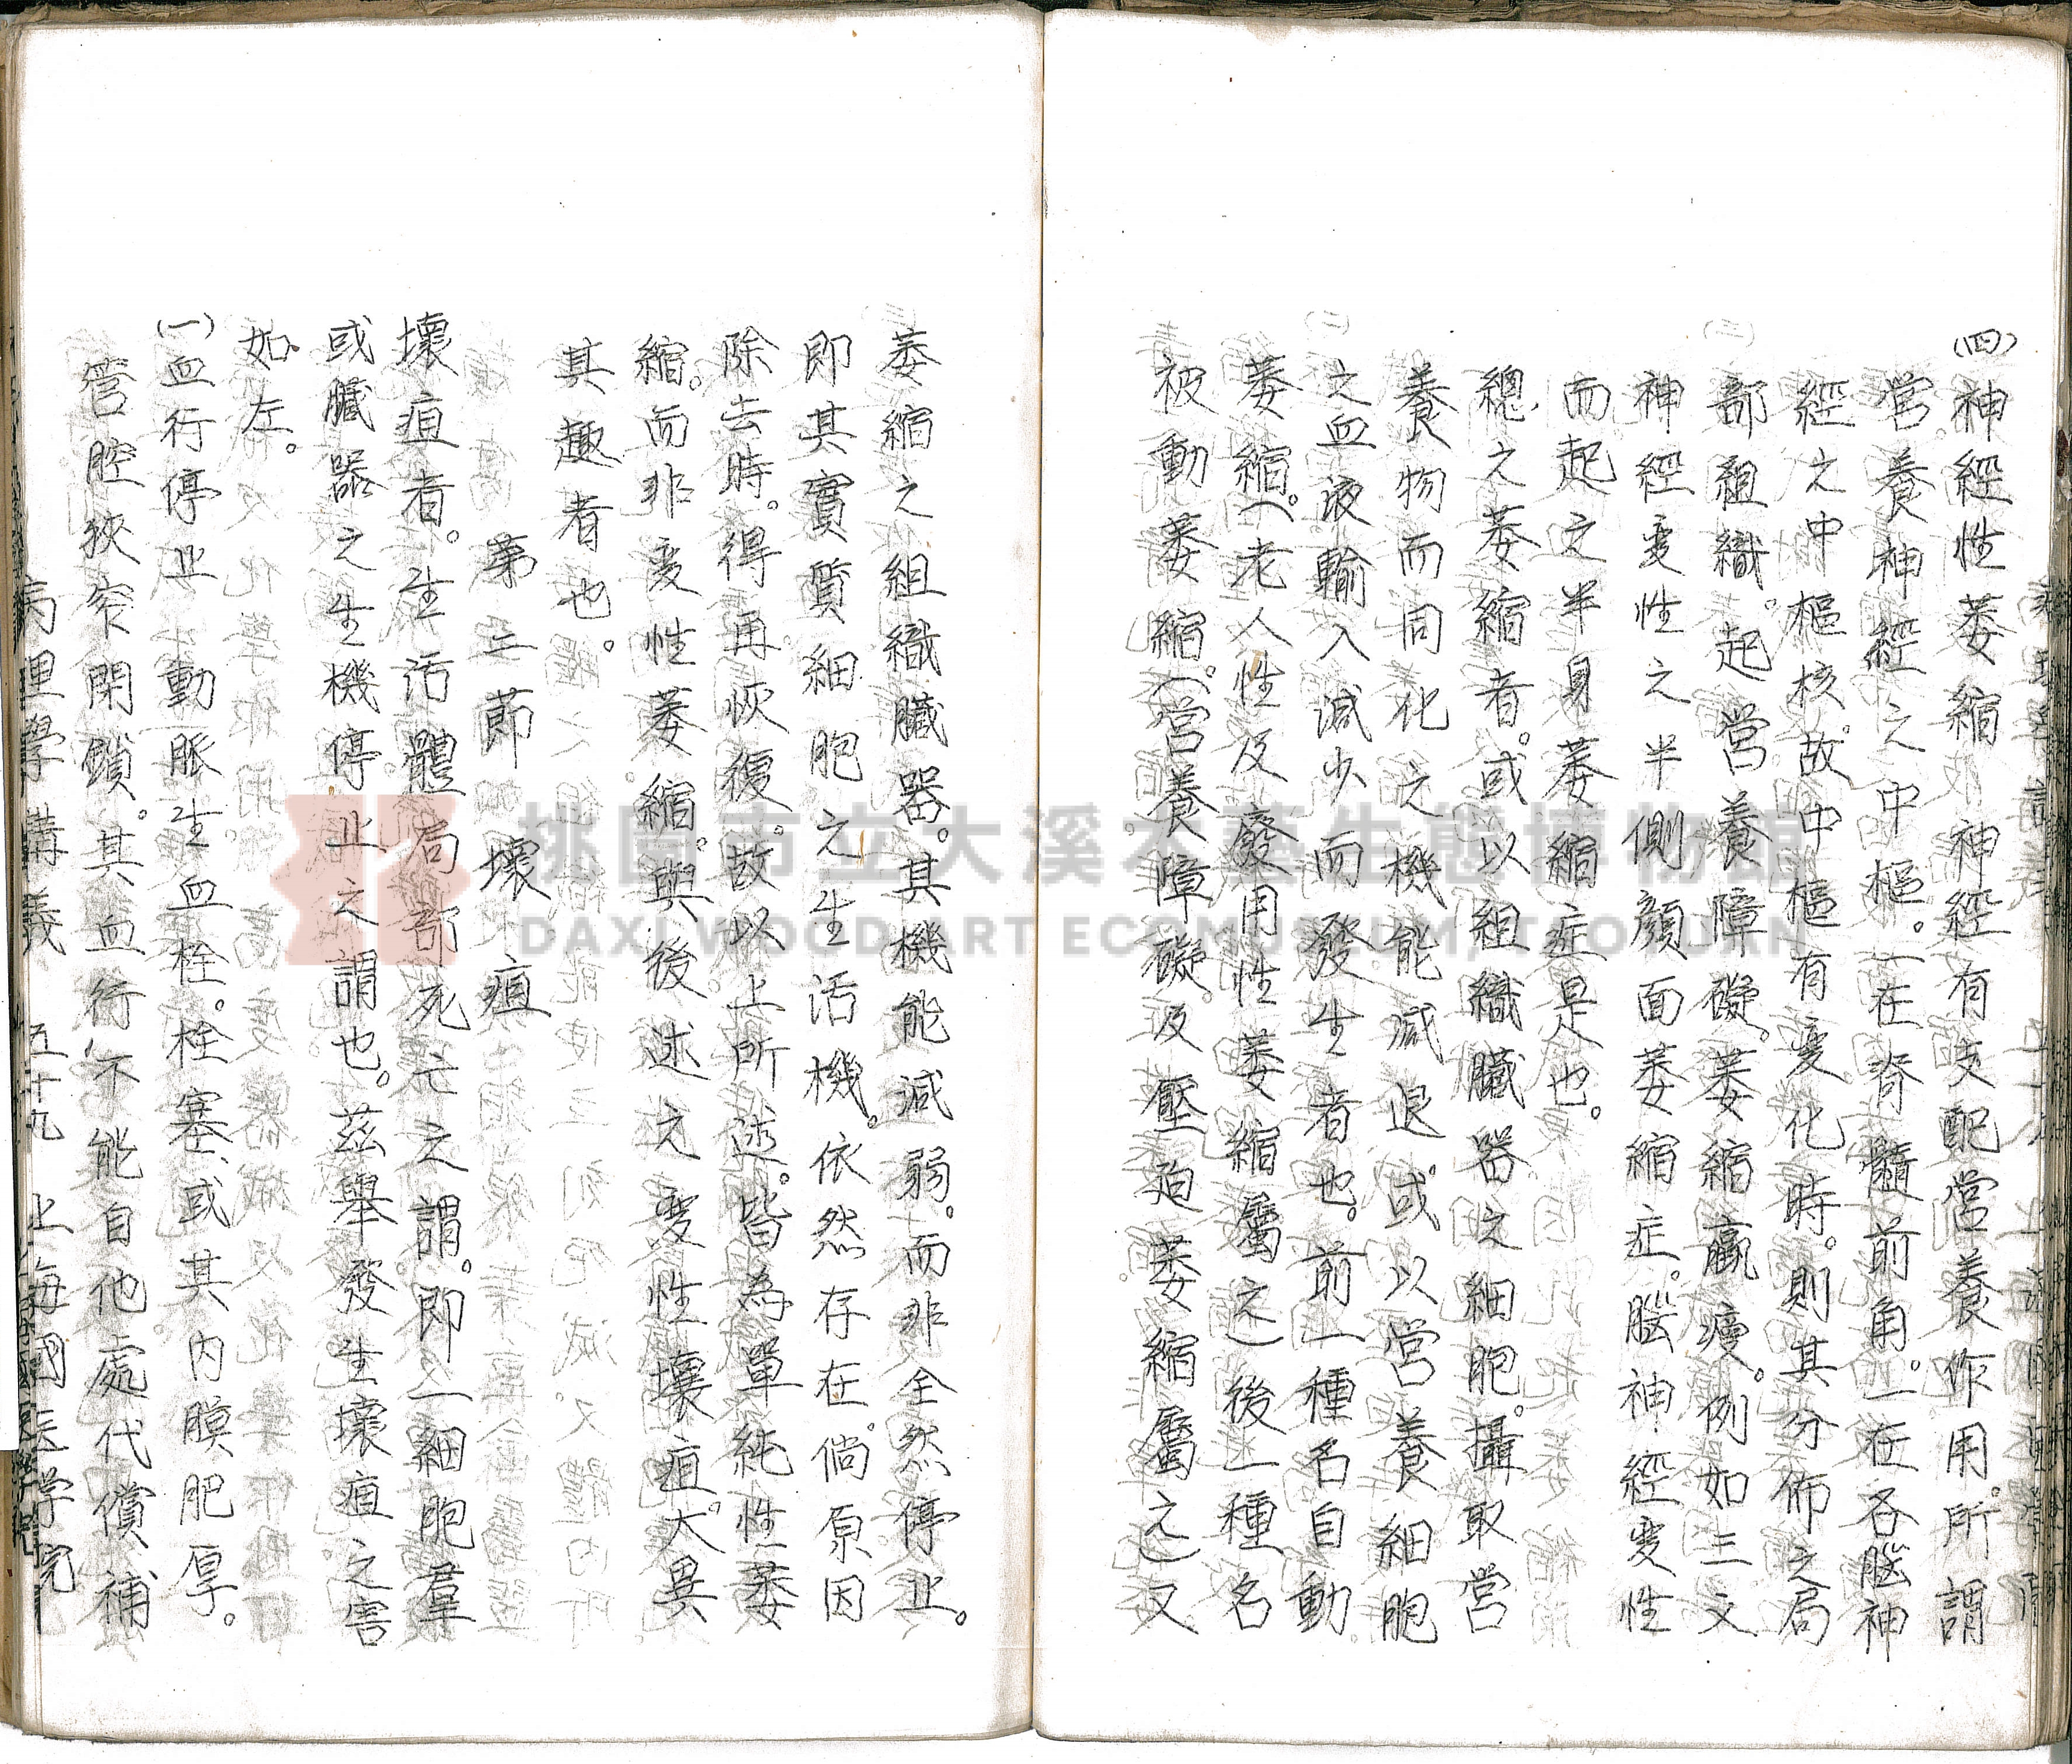 (四)神經性萎縮 神經有支配營養作用。所謂
營養神經之中樞。一在脊髓前角。一在各腦神
經之中樞核。故中樞有變化時。則其分佈之局
部組織。起營養障礙。萎縮羸瘦。例如三叉
神經變性之半側顏面萎縮症。腦神經變性
而起之半身萎縮症是也。
總之萎縮者。或以組織臟器之細胞。攝取營
養物而同化之機能減退。或以營養細胞
之血液輸入減少而發生者也。前一種名自動
萎縮。(老人性及廢用性萎縮屬之)後一種名
被動萎縮。(營養障礙及壓迫萎縮屬之)又
萎縮之組織臟器。其機能減弱。而非全然停止。
即其實質細胞之生活機。依然存在。倘原因
除去時。得再恢復。故以上所述。皆為單純性萎
縮。而非變性萎縮。與後述之變性壞疽。大異
其趣者也。
第二節 壞疽
壞疽者。生活體局部死亡之謂。即一細胞羣
或臟器之生機停止之謂也。茲舉發生壞疽之害
如左。
(一)血行停止 動脈生血栓。栓塞。或其內膜肥厚。
管腔狹窄閉鎖。其血行不能自他處代償補
病理學講義 五十九 上海國医学院
桃園市立大溪木藝生態博物館
DAXI WOOD ART ECOMUSEUM, TAOYUAN